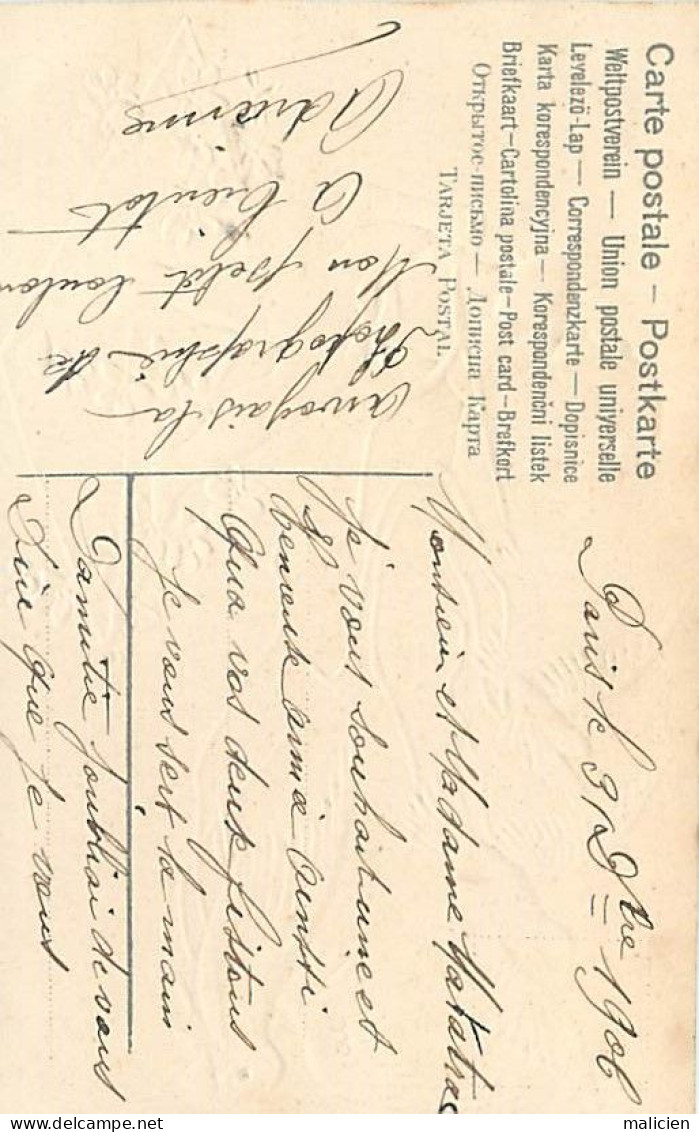 Carte postale – Postkarte
Weltpostverein — Union postale universelle
Levelezö-Lap — Correspondenzkarte — Dopisnice
Karta korespondencyjna — Korespondenční listek
Briefkaart – Cartolina postale – Post card – Brefkort
Открытое-письмо — Дописна Карта
Tarjeta Postal
Paris le 31 Dbre 1906
et Madame
Je vous souhait une et
heureuse année aussi
Qua vos deux fistons
Je vous sert la main
D'amitié Joubliai de vous
Dire que Je vous
anvoyais la
Photographie de
Mon petit loulou
A bientôt
Adrienne
delcampe.net
malicien